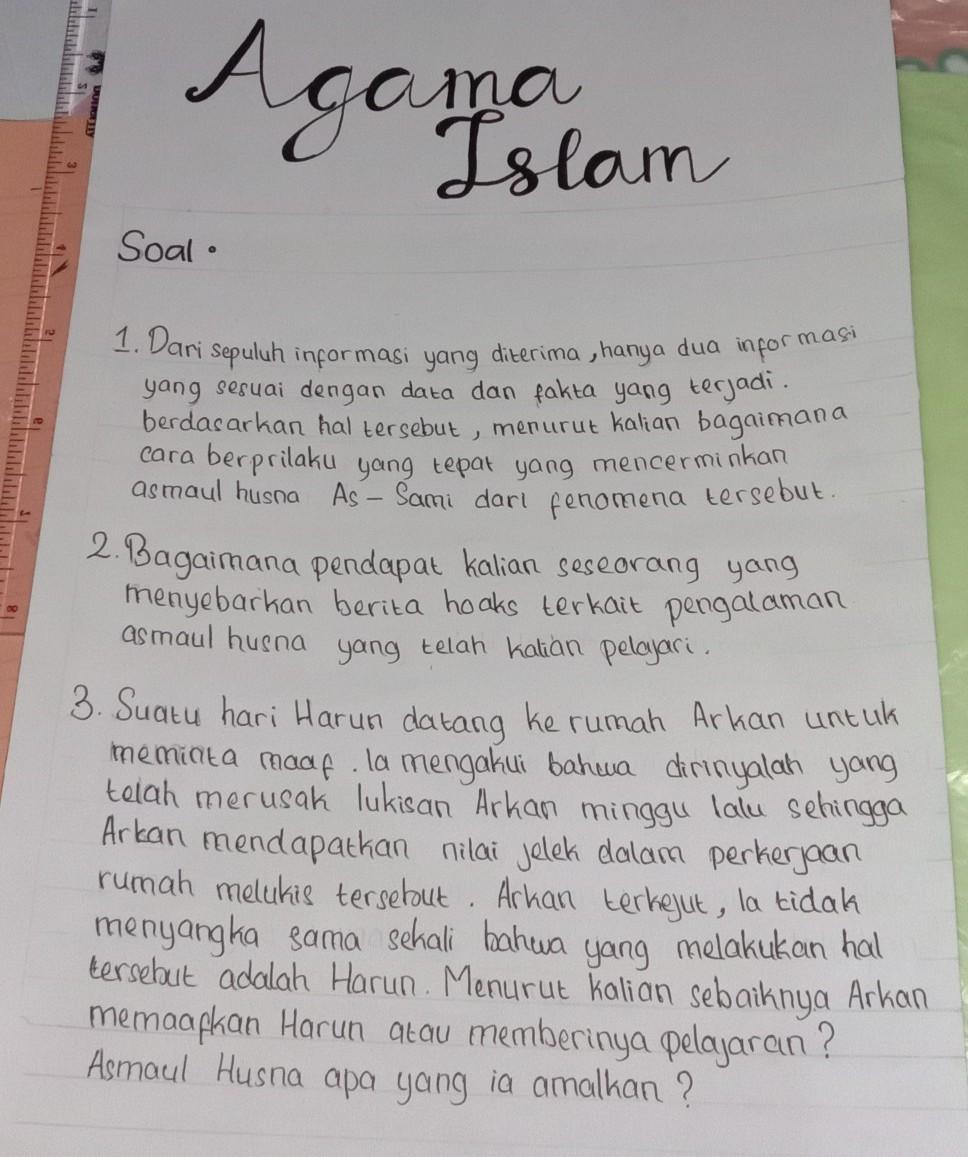 Agama
Islam
Soal.
1. Dari sepuluh informasi yang diterima, hanya dua informasi
yang sesuai dengan data dan fakta yang terjadi.
berdasarkan hal tersebut, menurut kalian bagaimana
cara berprilaku yang tepat yang mencerminkan
asmaul husna As - Sami dari fenomena tersebut.
2. Bagaimana pendapat kalian seseorang yang
menyebarkan berita hoaks terkait pengalaman
asmaul husna yang telah kalian pelajari.
3. Suatu hari Harun datang ke rumah Arkan untuk
meminta maaf. Ia mengakui bahwa dirinyalah yang
telah merusak lukisan Arkan minggu lalu sehingga
Arkan mendapatkan nilai jelek dalam perkerjaan
rumah melukis tersebut. Arkan terkejut, Ia tidak
menyangka sama sekali bahwa yang melakukan hal
tersebut adalah Harun. Menurut kalian sebaiknya Arkan
memaafkan Harun atau memberinya pelajaran?
Asmaul Husna apa yang ia amalkan?